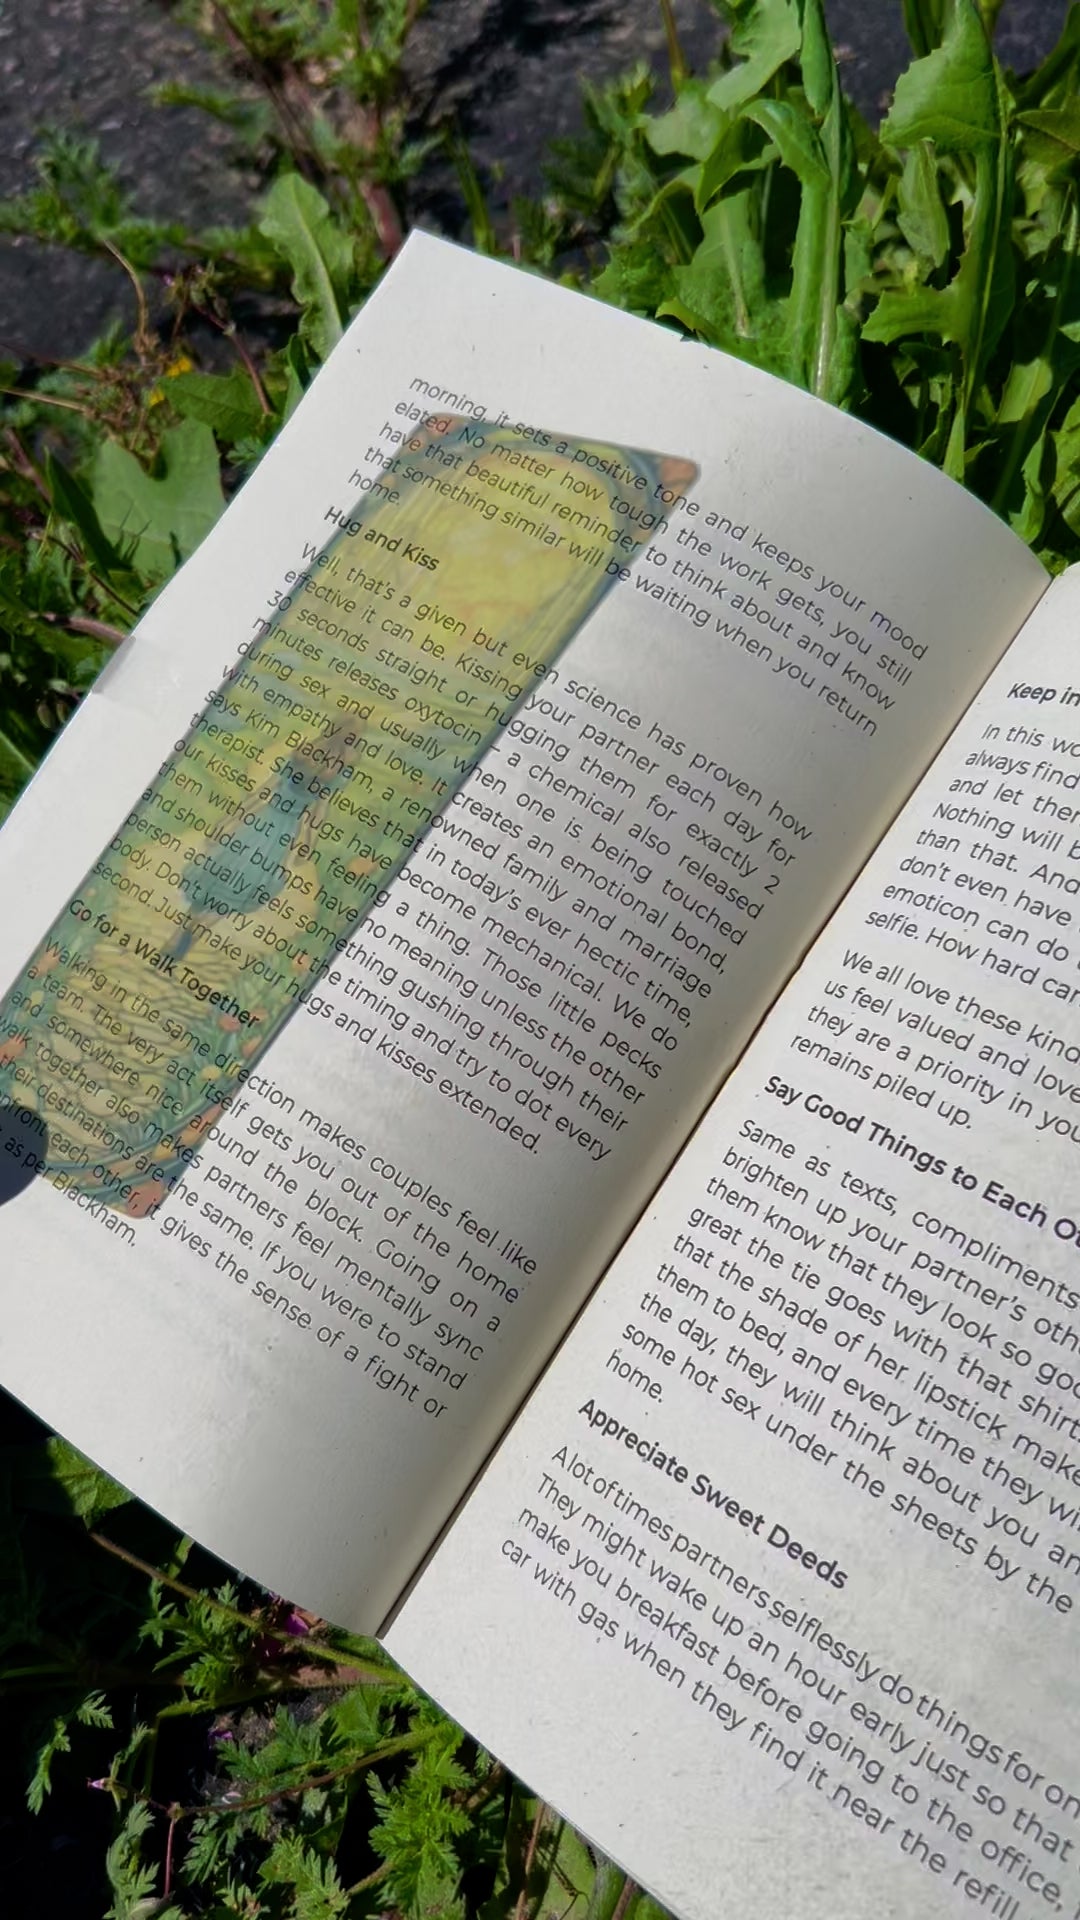 morning, it sets a positive tone and keeps your mood
elated. No matter how tough the work gets, you still
have that beautiful reminder to think about and know
that something similar will be waiting when you return
home.
Hug and Kiss
Well, that's a given but even science has proven how
effective it can be. Kissing your partner each day for
30 seconds straight or hugging them for exactly 2
minutes releases oxytocin – a chemical also released
during sex and usually when one is being touched
with empathy and love. It creates an emotional bond,
says Kim Blackham, a renowned family and marriage
therapist. She believes that in today's ever hectic time,
our kisses and hugs have become mechanical. We do
them without even feeling a thing. Those little pecks
and shoulder bumps have no meaning unless the other
person actually feels something gushing through their
body. Don't worry about the timing and try to dot every
second. Just make your hugs and kisses extended.
Go for a Walk Together
Walking in the same direction makes couples feel like
a team. The very act itself gets you out of the home
and somewhere nice around the block. Going on a
walk together also makes partners feel mentally sync
their destinations are the same. If you were to stand
each other, it gives the sense of a fight or
as per Blackham.
Keep in
In this
always find
and let
Nothing will
than that. And
don't even have
emoticon can do
selfie. How hard
We all love these
us feel valued and
they are a priority in
remains piled up.
Say Good Things to Each
Same as texts, compliments
brighten up your partner's
them know that they look so
great the tie goes with that shirt.
that the shade of her lipstick
them to bed, and every time they
the day, they will think about you
some hot sex under the sheets by the
home.
Appreciate Sweet Deeds
A lot of times partners selflessly do things for
They might wake up an hour early just so that
make you breakfast before going to the office,
car with gas when they find it near the refill